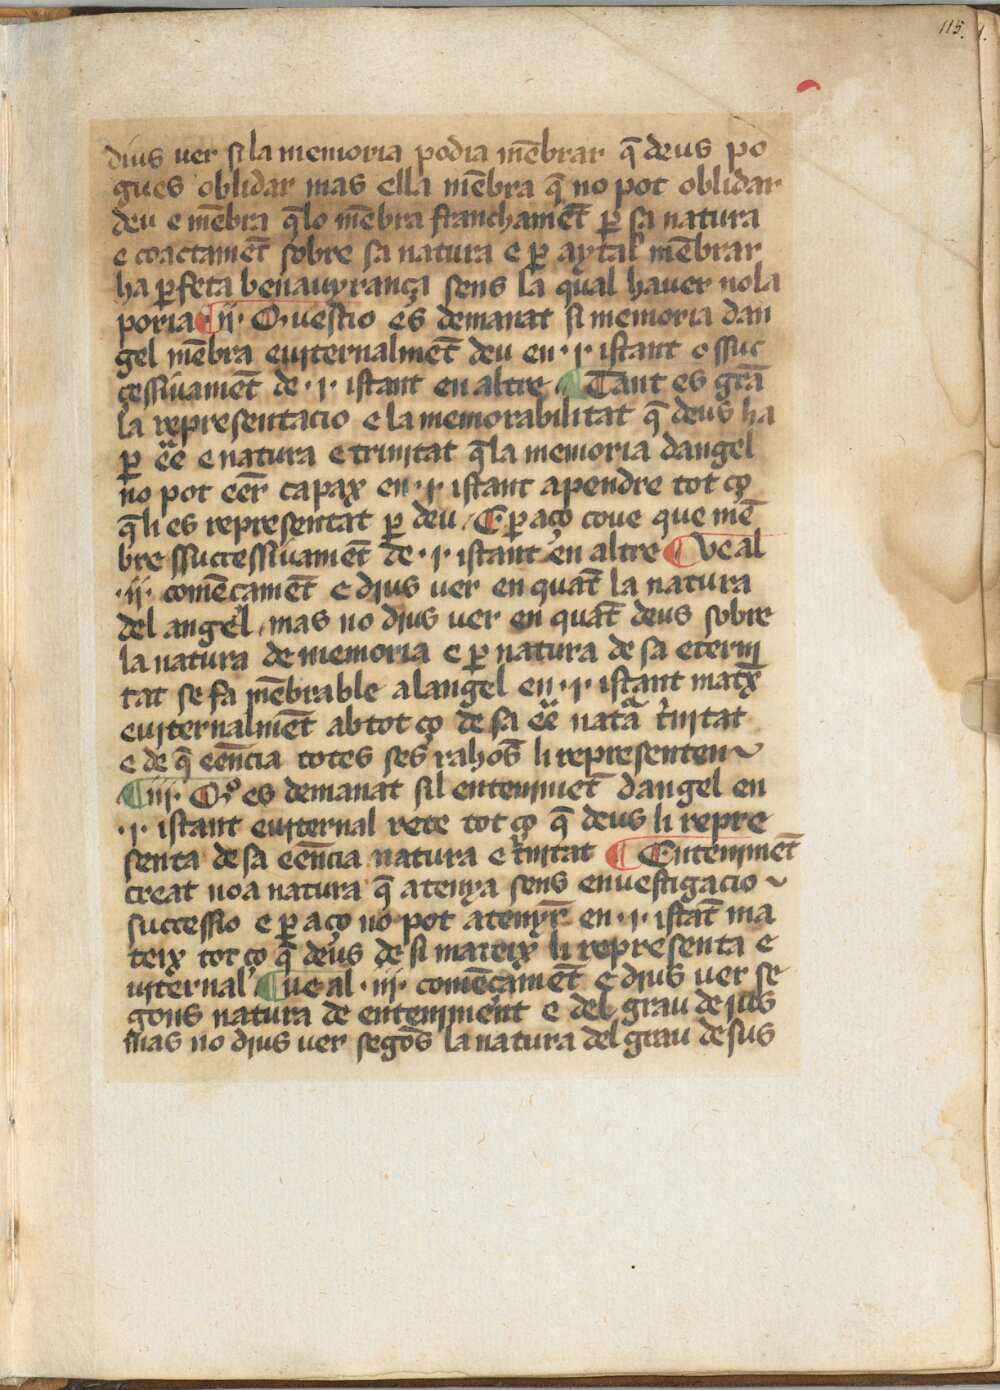 115.
dius ver si la memoria podia mẽbrar q̃ deus po
gues oblidar mas ella mẽbra q̃ no pot oblidar
deu e mẽbra q̃lo mẽbra franchamẽt ꝑ sa natura
e coactamẽt sobre sa natura e ꝑ aytal mẽbrar
ha ꝑfeta benauyrança sens la qual hauer nola
poria ¶ ·ii· Questio es demanat si memoria dan
gel mẽbra euiternalmẽt deu en ·i· istant o ssuc
cessiuament de ·i· istant en altre ¶ Tant es grã
la representacio e la memorabilitat q̃ deus ha
ꝑ ẽe e natura e trinitat q̃la memoria dangel
no pot eẽr capax en ·i· istant apendre tot ço
q̃ li es representat ꝑ deu. E ꝑ aço coue que mẽ
bre ssuccessiuamẽt de ·i· istant en altre ¶ Ve al
·ii· comẽcamẽt e dius ver en quãt la natura
del angel, mas no dius ver en quãt deus sobre
la natura de memoria e ꝑ natura de sa eterni
tat se fa mẽbrable alangel en ·i· istant matx̃
euiternalmẽt ab tot ço de sa ẽe natã t̃nitat
e de q̃ eẽncia totes ses rahõs li representen
¶ ·iii· Qº es demanat sil entenimẽt dangel en
·i· istant euiternal rete tot ço q̃ deus li repre
senta de sa eẽncia natura e t̃nitat ¶ Entenimẽt
creat noa natura q̃ atenya sens enuestigacio
successio e ꝑ aço no pot atenyr̃ en ·i· istãt ma
teix tot ço q̃ deus de si mateix li representa e
uiternal ¶ Ve al ·iii· comẽcamẽt e dius ver se
gons natura de enteniment e del grau de ius
mas no dius ver segõs la natura del grau de sus